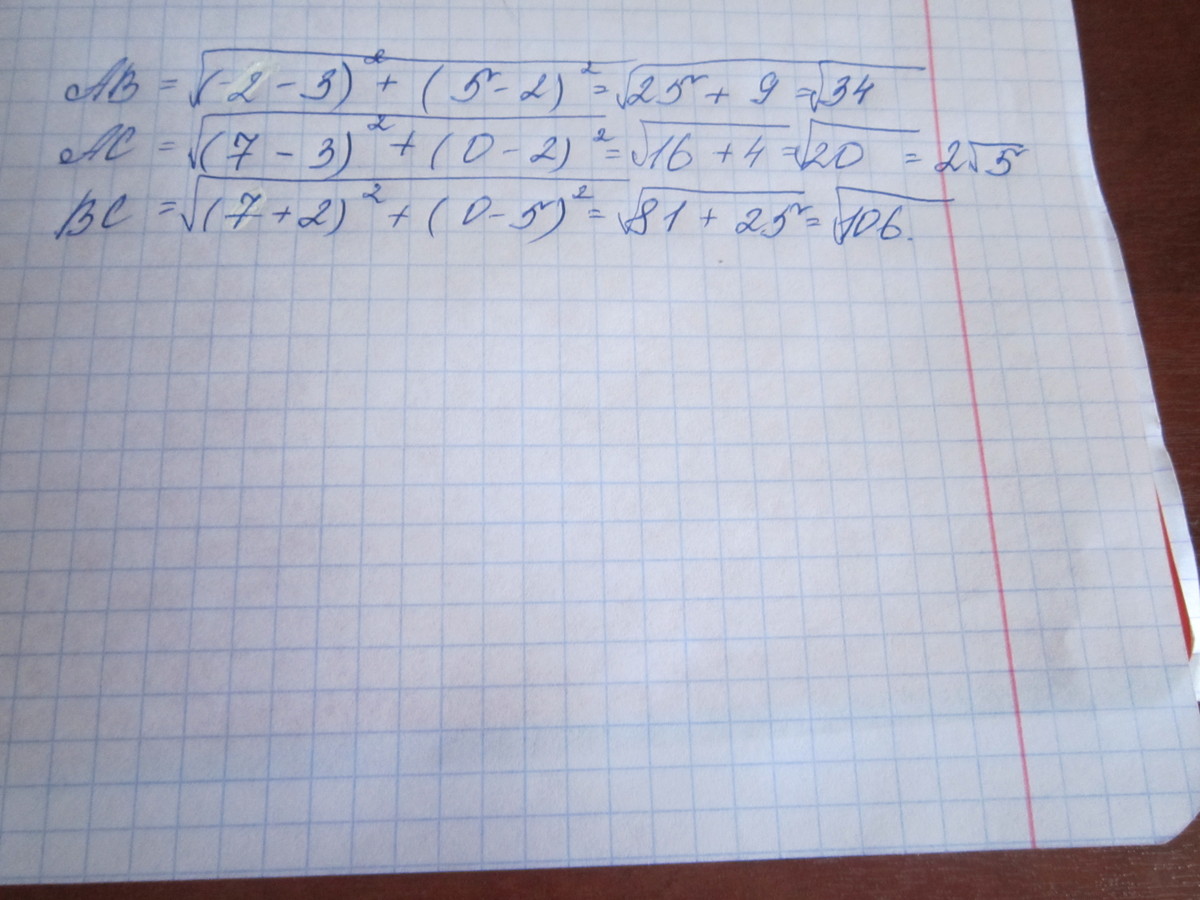 AB = √(-2-3)² + (5-2)² = √25 + 9 = √34
AC = √(7-3)² + (0-2)² = √16 + 4 = √20 = 2√5
BC = √(7+2)² + (0-5)² = √81 + 25 = √106.